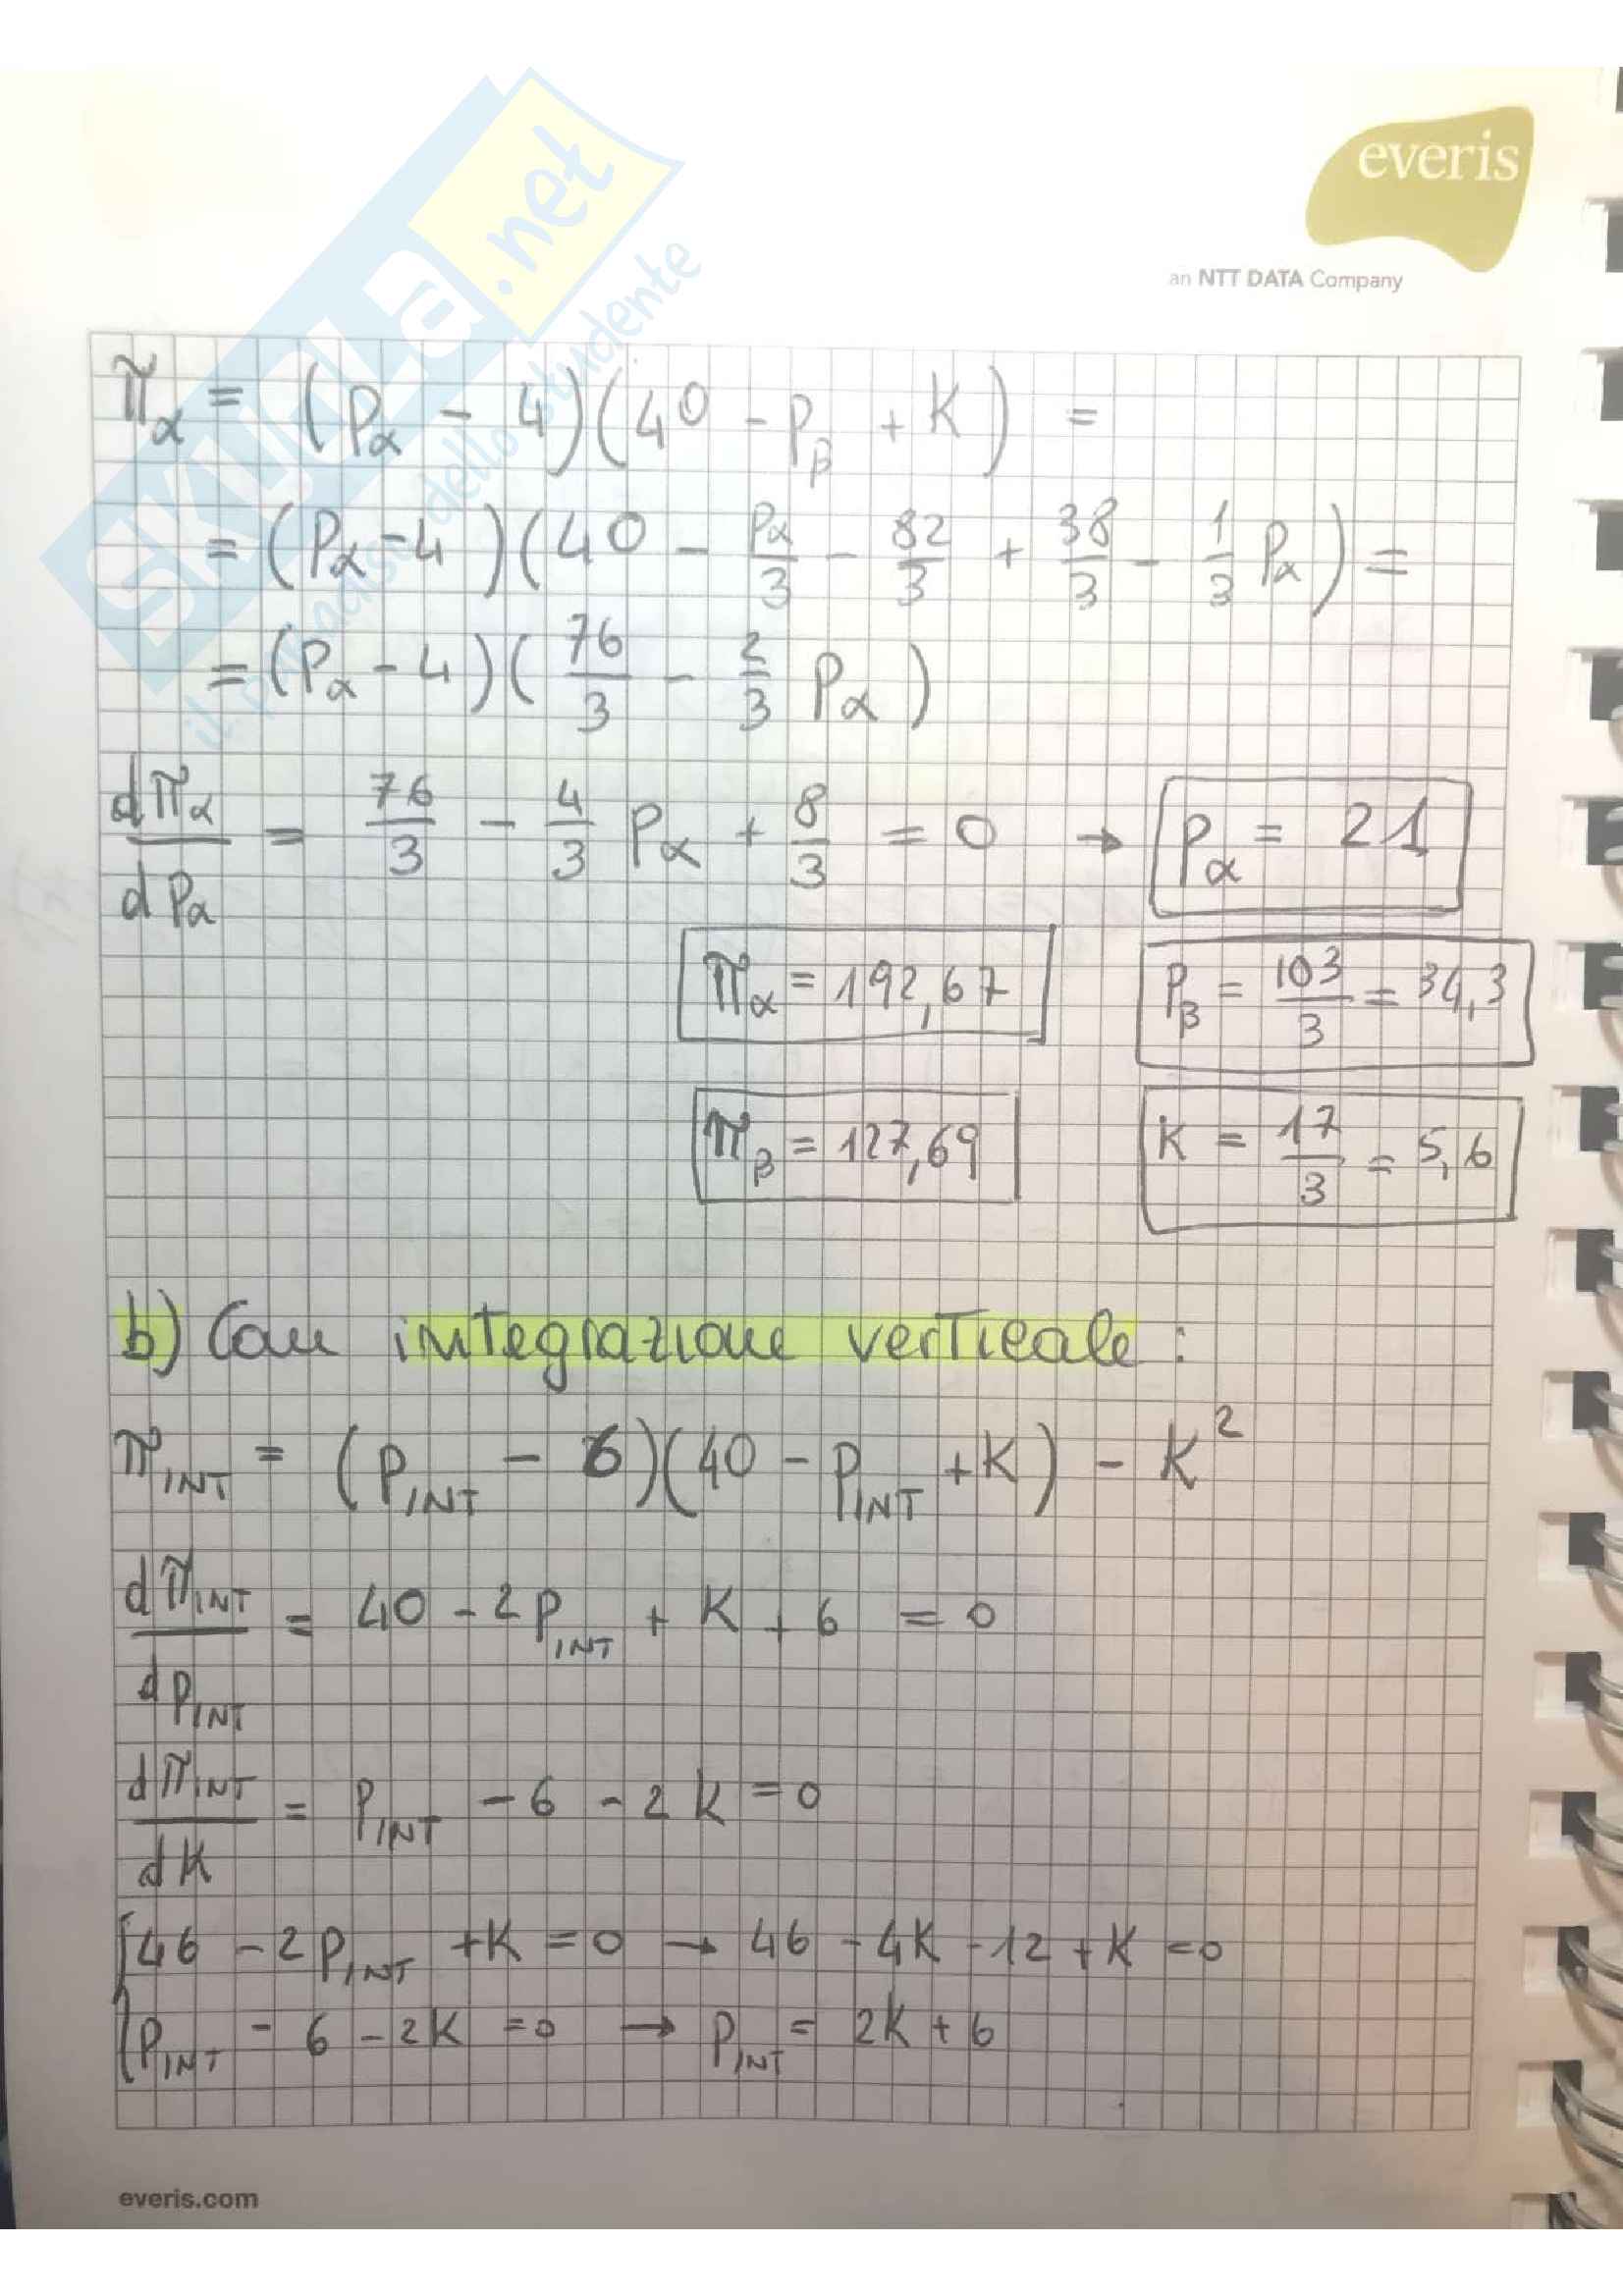 SKUOLA.net
il paradiso dello studente
everis
an NTT DATA Company
π_α = (P_α - 4)(40 - P_β + K) =
= (P_α - 4)(40 - P_α/3 - 82/3 + 38/3 - 1/3 P_α) =
= (P_α - 4)(76/3 - 2/3 P_α)
dπ_α/dP_α = 76/3 - 4/3 P_α + 8/3 = 0 → P_α = 21
π_α = 192,67 P_β = 103/3 = 34,3
π_β = 127,69 K = 17/3 = 5,6
b) Con integrazione verticale:
π_INT = (P_INT - 6)(40 - P_INT + K) - K²
dπ_INT/dP_INT = 40 - 2P_INT + K + 6 = 0
dπ_INT/dK = P_INT - 6 - 2K = 0
{46 - 2P_INT + K = 0 → 46 - 4K - 12 + K = 0
P_INT - 6 - 2K = 0 → P_INT = 2K + 6
everis.com